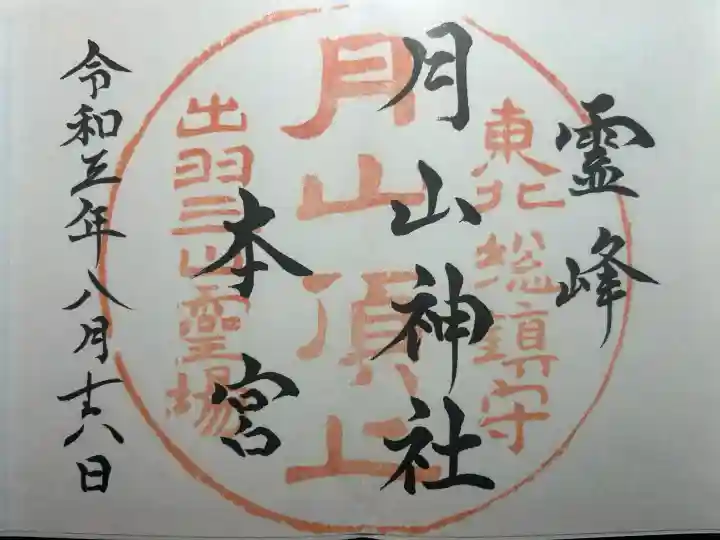 霊峰
東北総鎮守
月山神社
月山頂上
本宮
出羽三山霊場
令和五年八月十六日